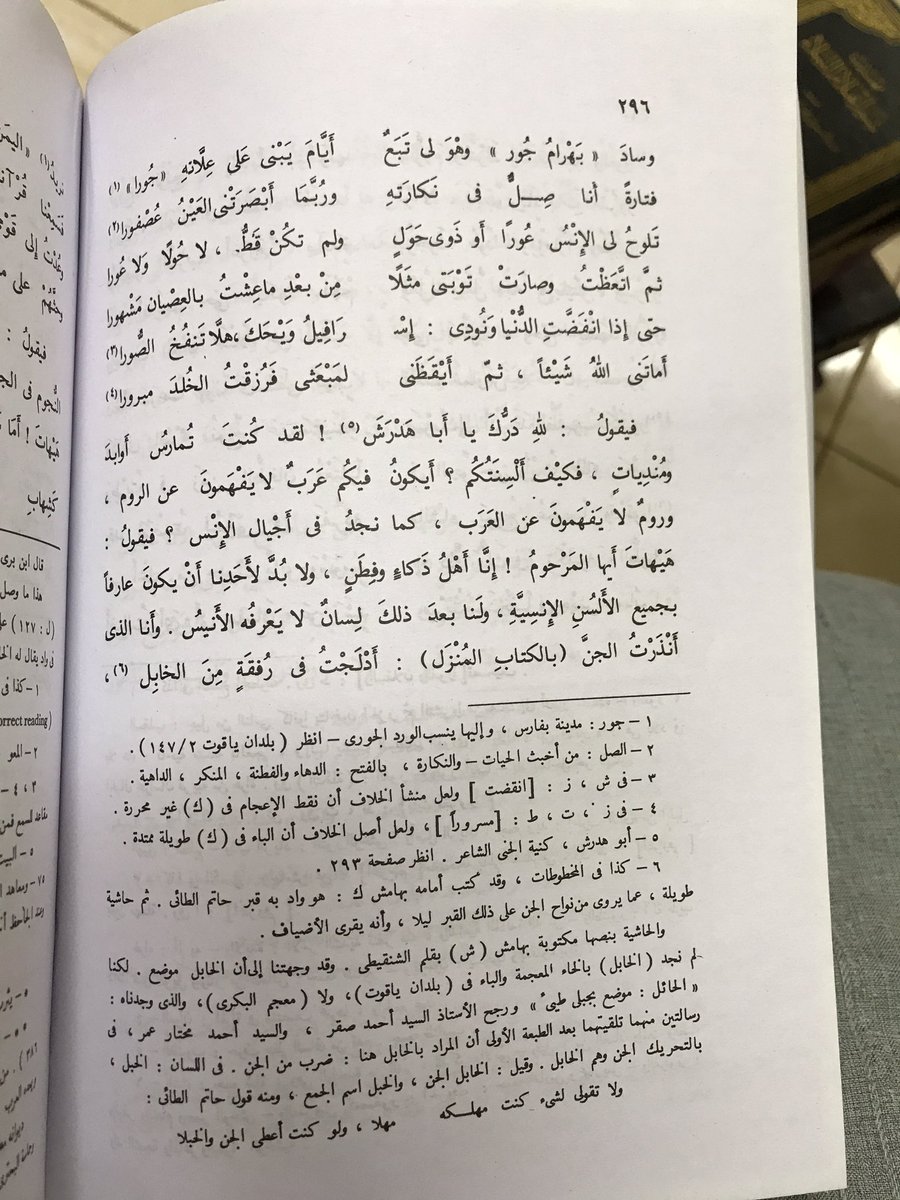 ٢٩٦
وسادَ « بَهْرامُ جُورٍ » وهْوَ لى تَبَعٌ أَيَّامَ يَبْنى عَلى عِلَّاتهِ «جُورا» (١)
فتارةً أنا صِلٌّ فى نَكارَتهِ ورُبَّمَا أَبْصَرَتْنى العَيْنُ عُصْفورا (٢)
تَلوحُ لى الإِنْسُ عُورًا أَو ذَوى حَوَلٍ ولم تكُنْ قَطُّ ، لا حُولًا وَلا عُورا
ثمَّ اتَّعَظْتُ وصارَتْ تَوْبَتى مثَلًا مِنْ بَعْدِ ماعِشْتُ بالعِصْيان مَشْهورا
حتى إذا انْفَضَّتِ الدُّنْيا وَنُودِى : إسْـ رَافِيلُ وَيْحَكَ ، هلَّا تَنفُخُ الصُّورا (٣)
أماتَنى اللهُ شَيْئاً ، ثمّ أَيْقَظَنى لمَبْعَثى فَرُزقْتُ الخُلدَ مبرورا (٤)
فيقولُ : لله دَرُّكَ يا أَبا هَدْرَشَ (٥) ! لقد كُنتَ تُمارسُ أَوابدَ
ومُنْدِياتٍ ، فكيْف أَلْسِنَتُكُم ؟ أَيكونُ فيكُم عَرَبٌ لا يَفْهَمونَ عن الروم ،
ورومٌ لا يَفْهَمونَ عن العَرَب ، كما نجدُ فى أَجْيال الإِنْس ؟ فيقولُ :
هَيْهاتَ أيها المَرْحومُ ! إنَّا أَهْلُ ذَكاءٍ وفِطَنٍ ، ولا بُدَّ لأَحَدِنا أَنْ يكونَ عارفاً
بجميع الأَلْسُنِ الإِنسِيَّةِ ، ولَنا بعدَ ذلكَ لِسانٌ لا يَعْرفُه الأَنيسُ . وأَنا الذى
أَنْذَرْتُ الجنَّ (بالكتابِ المُنْزَلِ) : أَدْلَجْتُ فى رُفقَةٍ مِنَ الخابِل (٦) ،
١ – جور : مدينة بفارس ، وإليها ينسب الورد الجورى – انظر ( بلدان ياقوت ١٤٧/٢ ) .
٢ – الصل : من أخبث الحيات – والنكارة ، بالفتح : الدهاء والفطنة ، المنكر ، الداهية .
٣ – فى ش ، ز : [انقضت ] ولعل منشأ الخلاف أن نقط الإعجام فى (ك) غير محررة .
٤ – فى ز ، ت ، ط : [مسروراً ] ، ولعل أصل الخلاف أن الباء فى (ك) طويلة ممتدة .
٥ – أبو هدرش ، كنية الجنى الشاعر . انظر صفحة ٢٩٣ .
٦ – كذا فى المخطوطات ، وقد كتب أمامه بهامش ك : هو واد به قبر حاتم الطائى . ثم حاشية
طويلة ، عما يروى من نواح الجن على ذلك القبر ليلا ، وأنه يقرى الأضياف .
والحاشية بنصها مكتوبة بهامش (ش) بقلم الشنقيطى . وقد وجهتنا إلى أن الخابل موضع . لكنا
لم نجد (الخابل) بالخاء المعجمة والباء فى (بلدان ياقوت) ، ولا (معجم البكرى) ، والذى وجدناه :
« الحائل : موضع بجبلى طيئ » ورجح الأستاذ السيد أحمد صقر ، والسيد أحمد مختار عمر ، فى
رسالتين منهما تلقيتهما بعد الطبعة الأولى أن المراد بالخابل هنا : ضرب من الجن . فى اللسان : الخبل ،
بالتحريك الجن وهم الخابل . وقيل : الخابل الجن ، والخبل اسم الجمع ، ومنه قول حاتم الطائى :
ولا تقولى لشىء كنت مهلكه مهلا ، ولو كنت أعطى الجن والخبلا